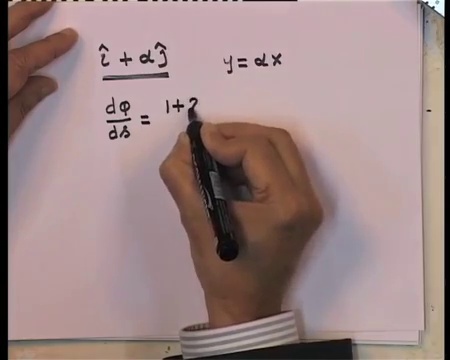 î + αĵ y = αx
dφ/ds = 1+2